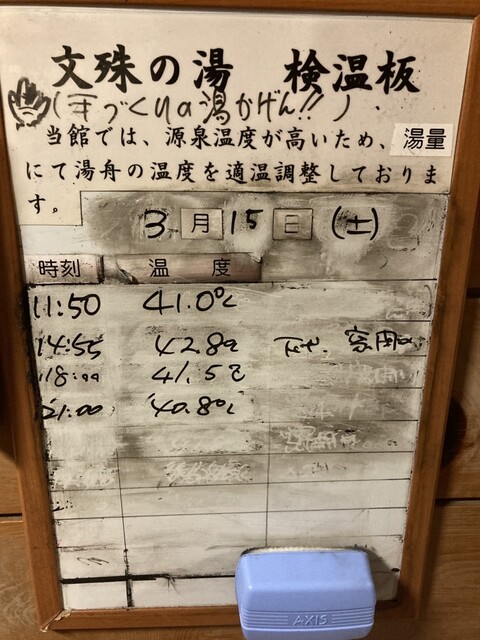 文殊の湯 検温板
(手づくりの湯かげん!!)
当館では、源泉温度が高いため、湯量
にて湯舟の温度を適温調整しておりま
す。
3月15日(土)
時刻 温度
11:50 41.0℃
14:55 42.8℃
18:00 41.5℃
21:00 40.8℃
AXIS